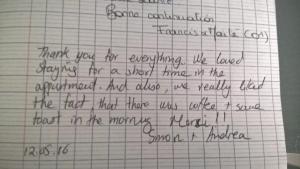 Bonne continuation
Francis Marie (07)
Thank you for everything. We loved
staying for a short time in the
appartment. And also, we really liked
the fact, that there was coffee + some
toast in the morning. Merci!!
Simon + Andrea
12.05.16